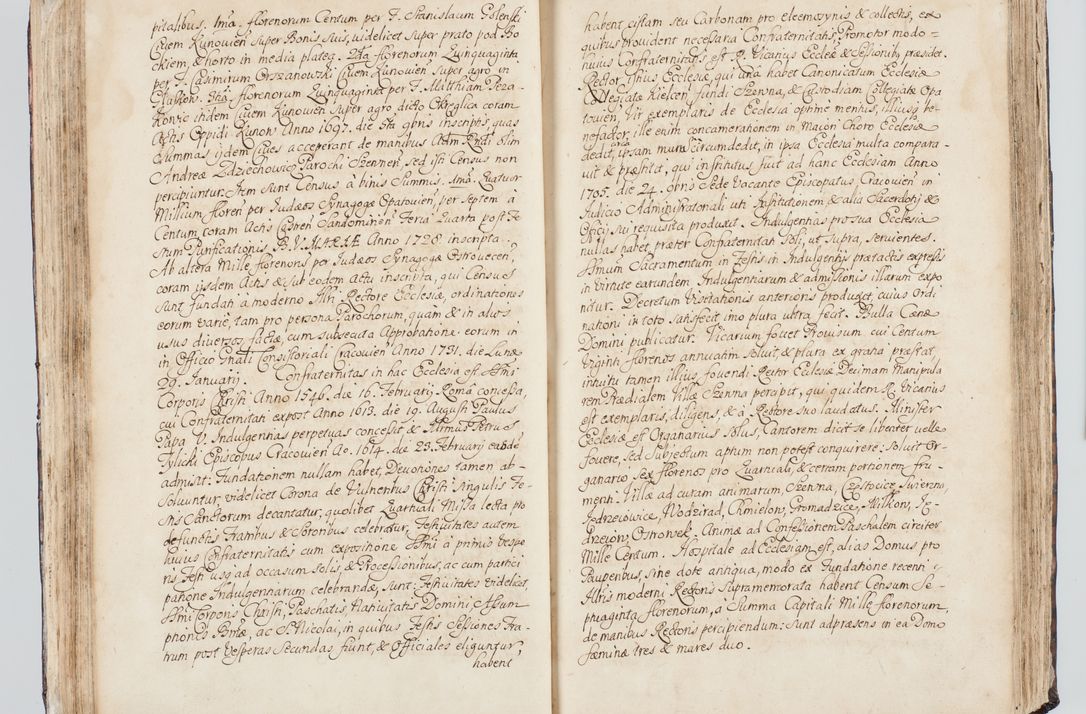 pitalibus. 1ma. florenorum Centum per F. Stanislaum Golenski
Civem Kunovien Super Bonis Suis, videlicet Super prato pod Bo
ckiem, & horto in media plateg. 2da florenorum Quinquaginta
per F. Casimirum Orszanowski Civem Kunovien Super agro in
3tia florenorum Quinquaginta per F. Matthiam Peza-
Konvic itidem Civem Kunovien Super agro dicto Okreglica coram
Actis Oppidi Kunov Anno 1697. die 8va 9bris inscriptis, quas
Summas ijdem Cives acceperant de manibus Adm. Rndi olim
Andreæ Zdziechowicz Parochi Szennen sed isti Census non
percipiuntur. Item sunt Census à binis Summis. 1ma. Quatuor
Millium floren per Judæos Synagogæ Opatovien, per Septem à
Centum, coram Actis Castren Sandomirien Feria Quarta post Fe
stum Purificationis B. V. MARIÆ Anno 1728 inscripta.
Ab altera Mille florenorũ per Judæos Synagogæ Ostrovecen,
coram ijsdem Actis & sub eodem actu inscripta, qui Census
sunt fundati à moderno Illri Rectore Ecclesiæ, ordinationes
eorum variæ, tam pro persona Parochorum, quam & in alios
usus diversos factæ, cum subsecuta Approbatione eorum in
in Officio Gnali Consistoriali Cracovien Anno 1731. die Lunæ
29. Januarij. Confraternitas in hac Ecclesia est Ssmi
Corporis Christi Anno 1546. die 16. Februarij Romæ concessa,
cui Confraternitati expost Anno 1613. die 19. Augusti Paulus
Papa V. Indulgentias perpetuas concessit & Illrmus Petrus
Tylicki Episcopus Cracovien Ao. 1614. die 23. Februarij easdẽ
admisit. Fundationem nullam habet, Devotiones tamen ab-
solvuntur videlicet Corona de Vulneribus Christi Singulis Fe-
stis Sanctorum decantatur, quolibet Quartuali Missa lecta pro
defunctis Fratribus & Sororibus celebratur, Festivitates autem
huius Confraternitatis cum expositione Ssmi à primis Vespe
ris Festi usq ad occasum Solis, & Processionibus, ac cum partici
patione Indulgentiarum celebrandæ, sunt: Festivitates Videlicet
Ssmi Corporis Christi, Paschatis, Nativitatis Domini, Assum
ptionis Bmæ, ac S. Nicolai, in quibus Festis Sessiones Fra-
trum post Vesperas Secundas fiunt, & Officiales eliguntur,
habent
habent cistam seu Carbonam pro eleemosynis & collectis, ex
quibus provident necessaria Confraternitatis, Promotor modo-
rnus Confraternitatis est R. Vicarius Ecclæ & Sessionib, præsidet.
Rector Ihius Ecclesiæ, qui una habet Canonicatum Ecclesiæ
Collegiatæ Kielcen fundi Szevna, & Custodiam Collegiatæ Opa
tovien, Vir exemplaris de Ecclesia optime meritus, illius be-
nefactor, ille enim concamerationem in Maiori Choro Ecclesiæ
dedit, ipsam muro circumdedit, in ipsa Ecclesia multa compara-
vit & præstitit, qui institutus fuit ad hanc Ecclesiam Anno
1705. die 24. 9bris Sede Vacante Episcopatus Cracovien in
Judicio Administratoriali uti Institutionem & alia Sacerdotij &
Officij sui requisita produxit. Indulgentias pro sua Ecclesia
nullas habet, præter Confraternitati Soli, ut Supra, servientes.
Ssmum Sacramentum in Festis in Indulgentijs prætactis expressis
in virtute earundem Indulgentiarum & admissionis illarum expo
nitur. Decretum Visitationis anterioris produxit, cuius ordi
nationi in toto Satisfecit imo plura ultra fecit. Bulla Cænæ
Domini publicatur. Vicarium fovet Provisum cui Centum
Viginti florenos annuatim solvit, & plura ex gratia præstat,
intuitu tamen illius fovendi Rector Ecclesiæ Decimam Manipula
rem Prædialem Villæ Szevna percipit, qui quidem R. Vicarius
est exemplaris, diligens, & à Rectore suo laudatus. Minister
Ecclesiæ est Organarius Solus, Cantorem dicit se libenter velle
fovere, sed Subjectum aptum non potest conquirere: Solvit Or-
ganario Sex florenos pro Quartuali, & certam portionem fru-
menti. Villæ ad curam animarum, Szevna, Częstocice, Świerzno,
Jędrzeiowice, Wodzirad, Chmielov, Gromadzice, Miłkov, Ję-
drzeiov, Ostrovsek. Animæ ad Confessionem Paschalem circiter
Mille Centum. Hospitale ad Ecclesiam est, alias Domus pro
Pauperibus, sine dote antiqua, modo ex Fundatione recenti
Illris moderni Rectoris Supramemorata habent Censum Se-
ptuaginta florenorum, a Summa Capitali Mille florenorum,
de manibus Rectoris percipiendum: Sunt ad præsens in ea Domo
fæminæ tres & mares duo.